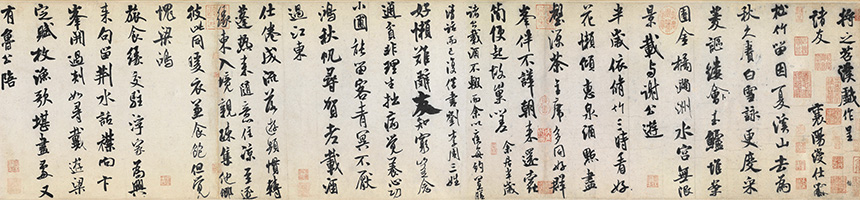 將之苕溪戲作呈
諸友
襄陽漫仕黻
松竹留因夏溪山去為
秋久賡白雪詠更度采
菱謳縷會玉鱸堆案
團金橘滿洲水宮無限
景載與謝公遊
半歲依脩竹三時看好
花懶傾惠泉酒點盡
壑源茶主席多同好群
峯伴不譁朝來還蠹
簡便起故巢嗟 余居半歲
諸公載酒不輟而余以疾每約置膳
清話而已復借書劉李周三姓
好懶難辭友知窮豈念
通貧非理生拙病覺養心功
小圃能留客青冥不厭
鴻秋帆尋賀老載酒
過江東
仕倦成流落遊頻慣轉
蓬熱來隨意住涼至逐
緣東入境親疎集他鄉
彼此同暖衣兼食飽但覺
愧梁鴻
旅食緣交駐浮家為興
來句留荊水話襟向卞
峯開過剡如尋戴遊梁
定賦枚漁歌堪畫處又
有魯公陪